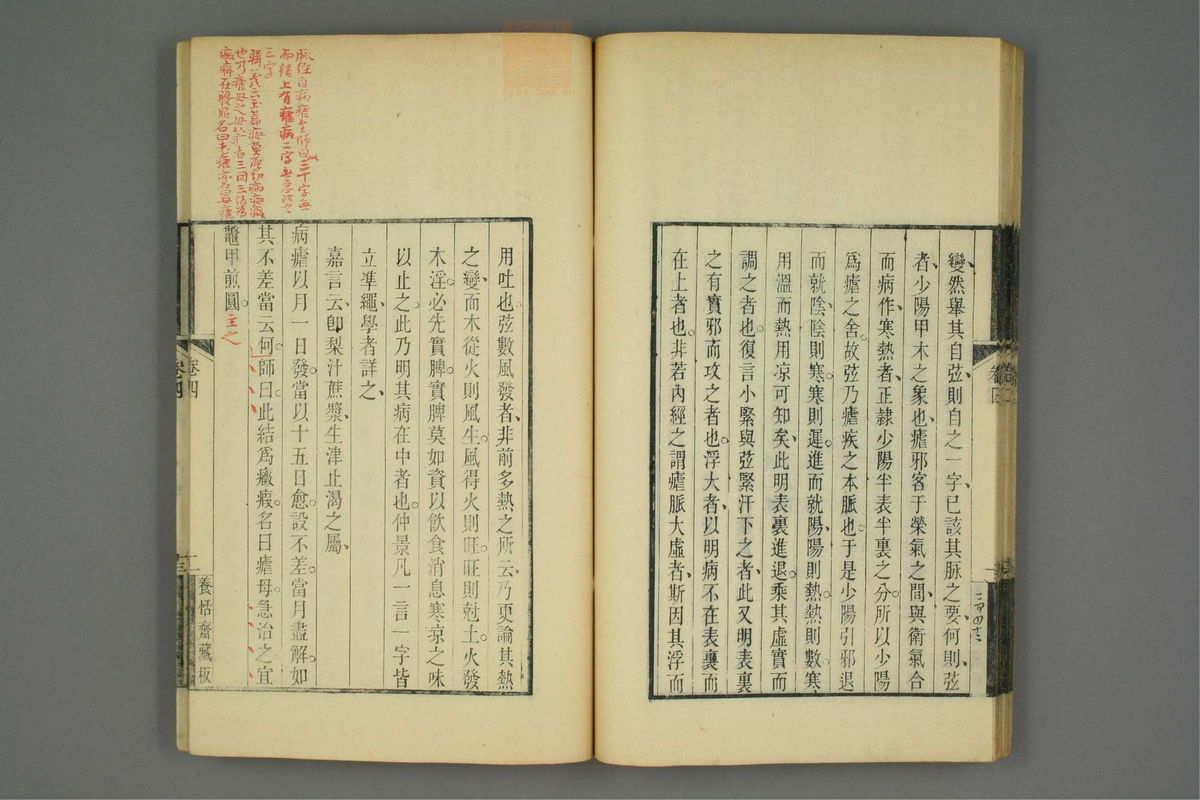 變然舉其自弦則自之一字已該其脉之要何則弦
者少陽甲木之象也瘧邪客于榮氣之間與衛氣合
而病作寒熱者正隷少陽半表半裏之分所以少陽
爲瘧之舍故弦乃瘧疾之本脈也于是少陽引邪退
而就陰陰則寒寒則遲進而就陽陽則熱熱則數寒
用溫而熱用凉可知矣此明表裏進退乘其虛實而
調之者也復言小緊與弦緊汗下之者此又明表裏
之有實邪而攻之者也浮大者以明病不在表裏而
在上者也非若內經之謂瘧脈大虛者斯因其浮而
卷四
用吐也弦數風發者非前多熱之所云乃更論其熱
之變而木從火則風生風得火則旺旺則尅土火發
木淫必先實脾實脾莫如資以飲食消息寒凉之味
以止之此乃明其病在中者也仲景凡一言一字皆
立準繩學者詳之
嘉言云卽梨汁蔗漿生津止渴之屬
病瘧以月一日發當以十五日愈設不差當月盡解如
其不差當云何師曰此結爲癥瘕名曰瘧母急治之宜
鼈甲煎圓主之
卷四
養恬齋藏板
三字